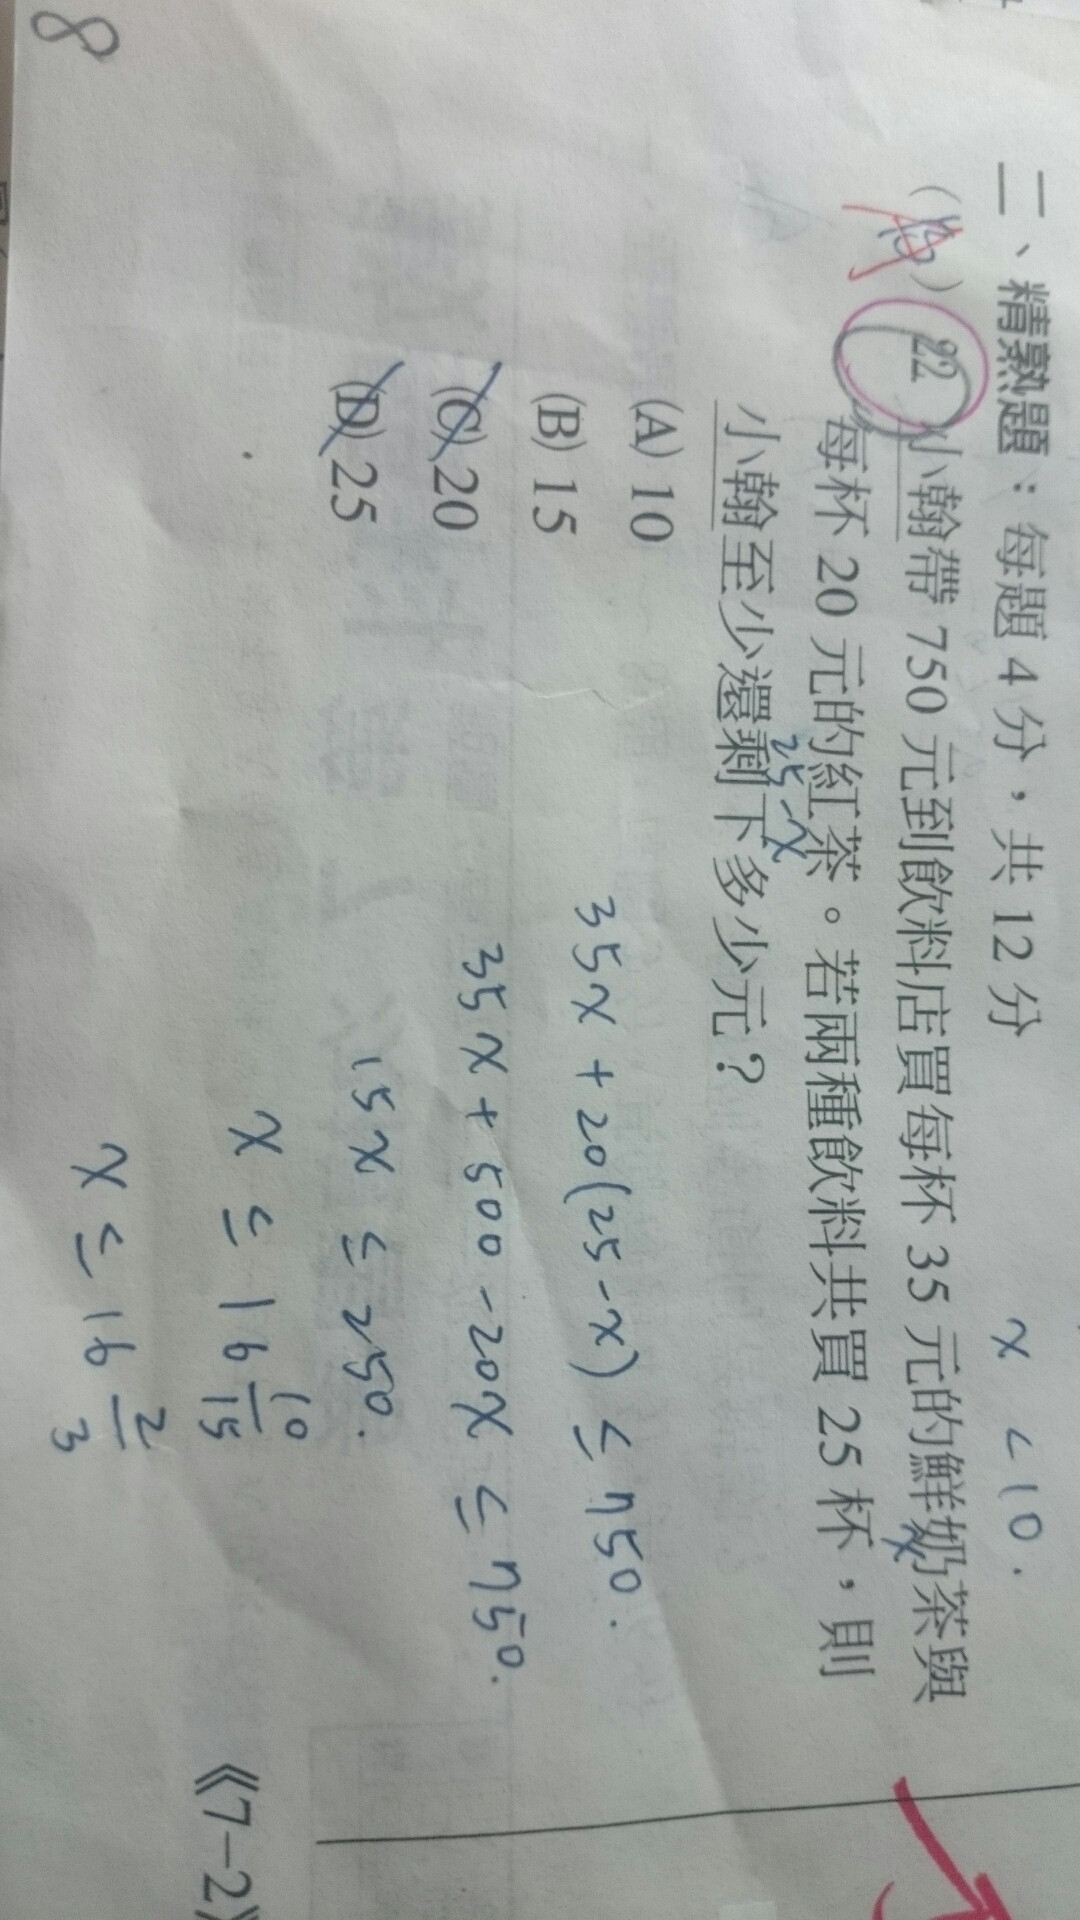 二、精熟題：每題 4 分，共 12 分
x < 10.
( ) 22 小翰帶 750 元到飲料店買每杯 35 元的鮮奶茶與
x
每杯 20 元的紅茶。若兩種飲料共買 25 杯，則
25-x
小翰至少還剩下多少元？
(A) 10
(B) 15
(C) 20
(D) 25
35x + 20(25-x) ≤ 750.
35x + 500 - 20x ≤ 750.
15x ≤ 250.
x ≤ 16 10/15
x ≤ 16 2/3
8
《7-2》